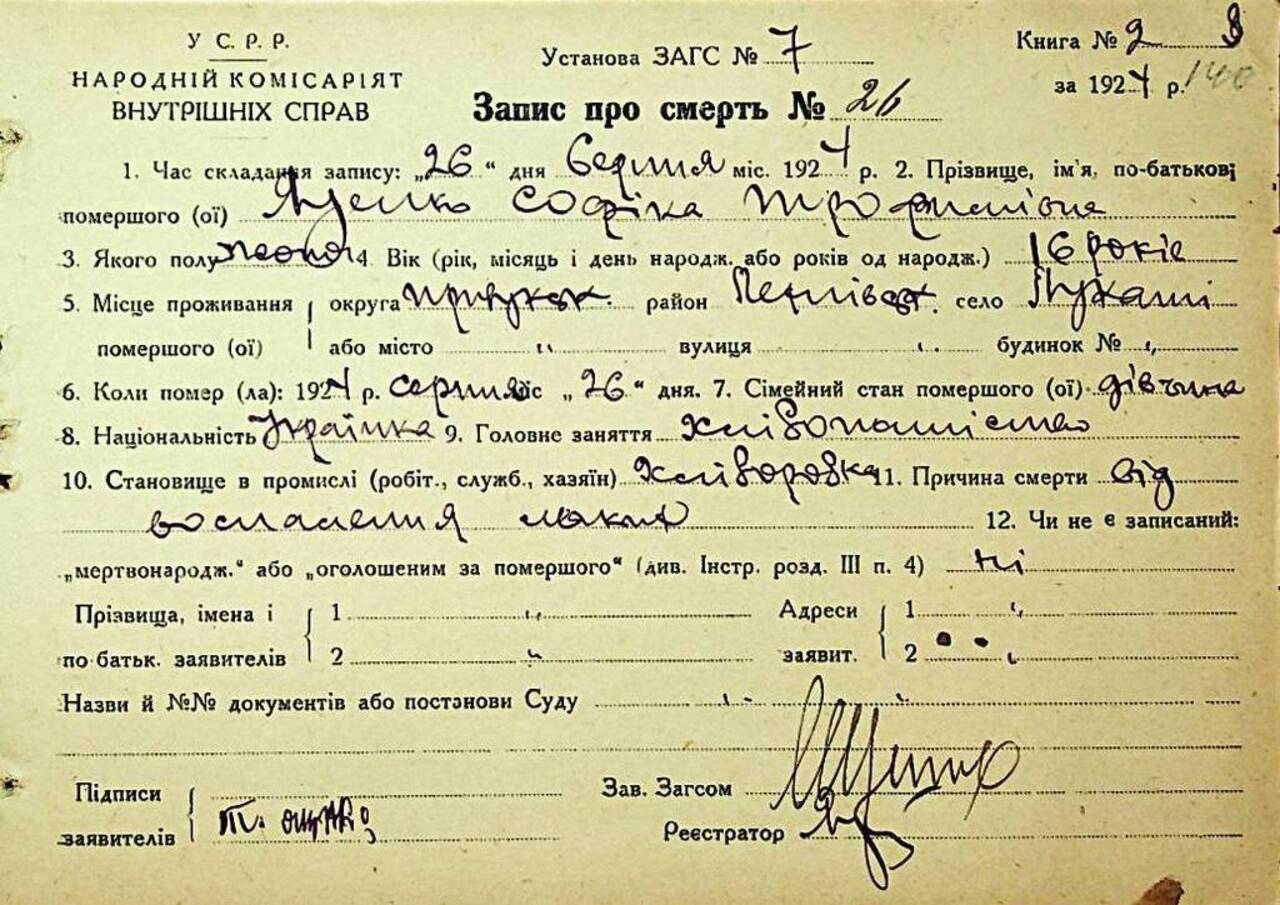 У С. Р. Р.
НАРОДНІЙ КОМІСАРІЯТ
ВНУТРІШНІХ СПРАВ
Установа ЗАГС № 7
Книга № 2 8
за 1924 р. 140
Запис про смерть № 26
1. Час складання запису: „26“ дня Серпня міс. 1924 р. 2. Прізвище, ім'я, по-батькові
помершого (ої) Яценко Софіка Трофимівна
3. Якого полу 4 Вік (рік, місяць і день народж. або років од народж.) 16 років
5. Місце проживання округа район село
помершого (ої) або місто „ вулиця „ будинок № „
6. Коли помер (ла): 1924 р. серпня міс „26“ дня. 7. Сімейний стан помершого (ої) дівчина
8. Національність Українка 9. Головне заняття
10. Становище в промислі (робіт., служб., хазяїн) 11. Причина смерти від
воспаления
12. Чи не є записаний:
„мертвонародж.“ або „оголошеним за помершого“ (див. Інстр. розд. III п. 4) ні
Прізвища, імена і
по батьк. заявителів
1 „
2 „
Адреси
заявит.
1 „
2 „
Назви й №№ документів або постанови Суду „
Підписи
заявителів
Зав. Загсом
Реєстратор